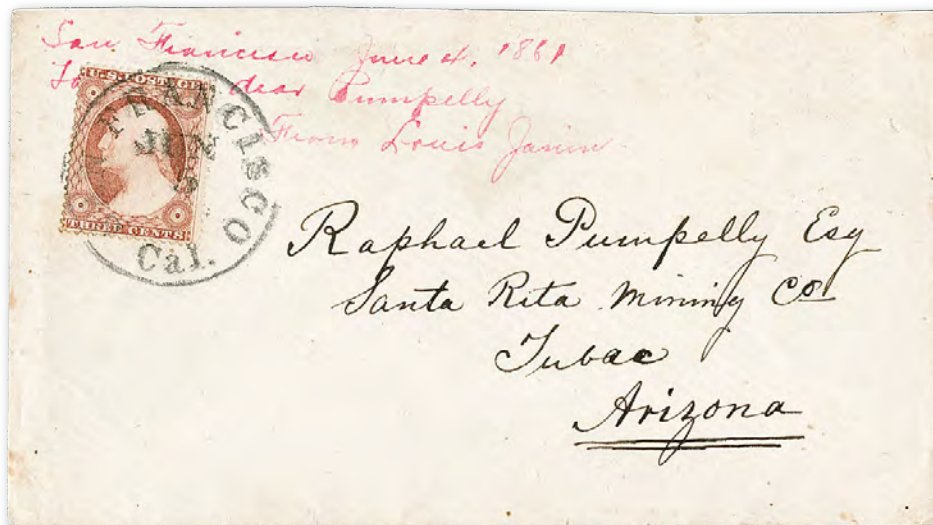 San Francisco June 4. 1861
dear Pumpelly
From Louis Janin
U.S. POSTAGE
THREE CENTS
FRANCISCO
JUN
5
Cal.
Raphael Pumpelly Esq
Santa Rita Mining Co
Tubac
Arizona